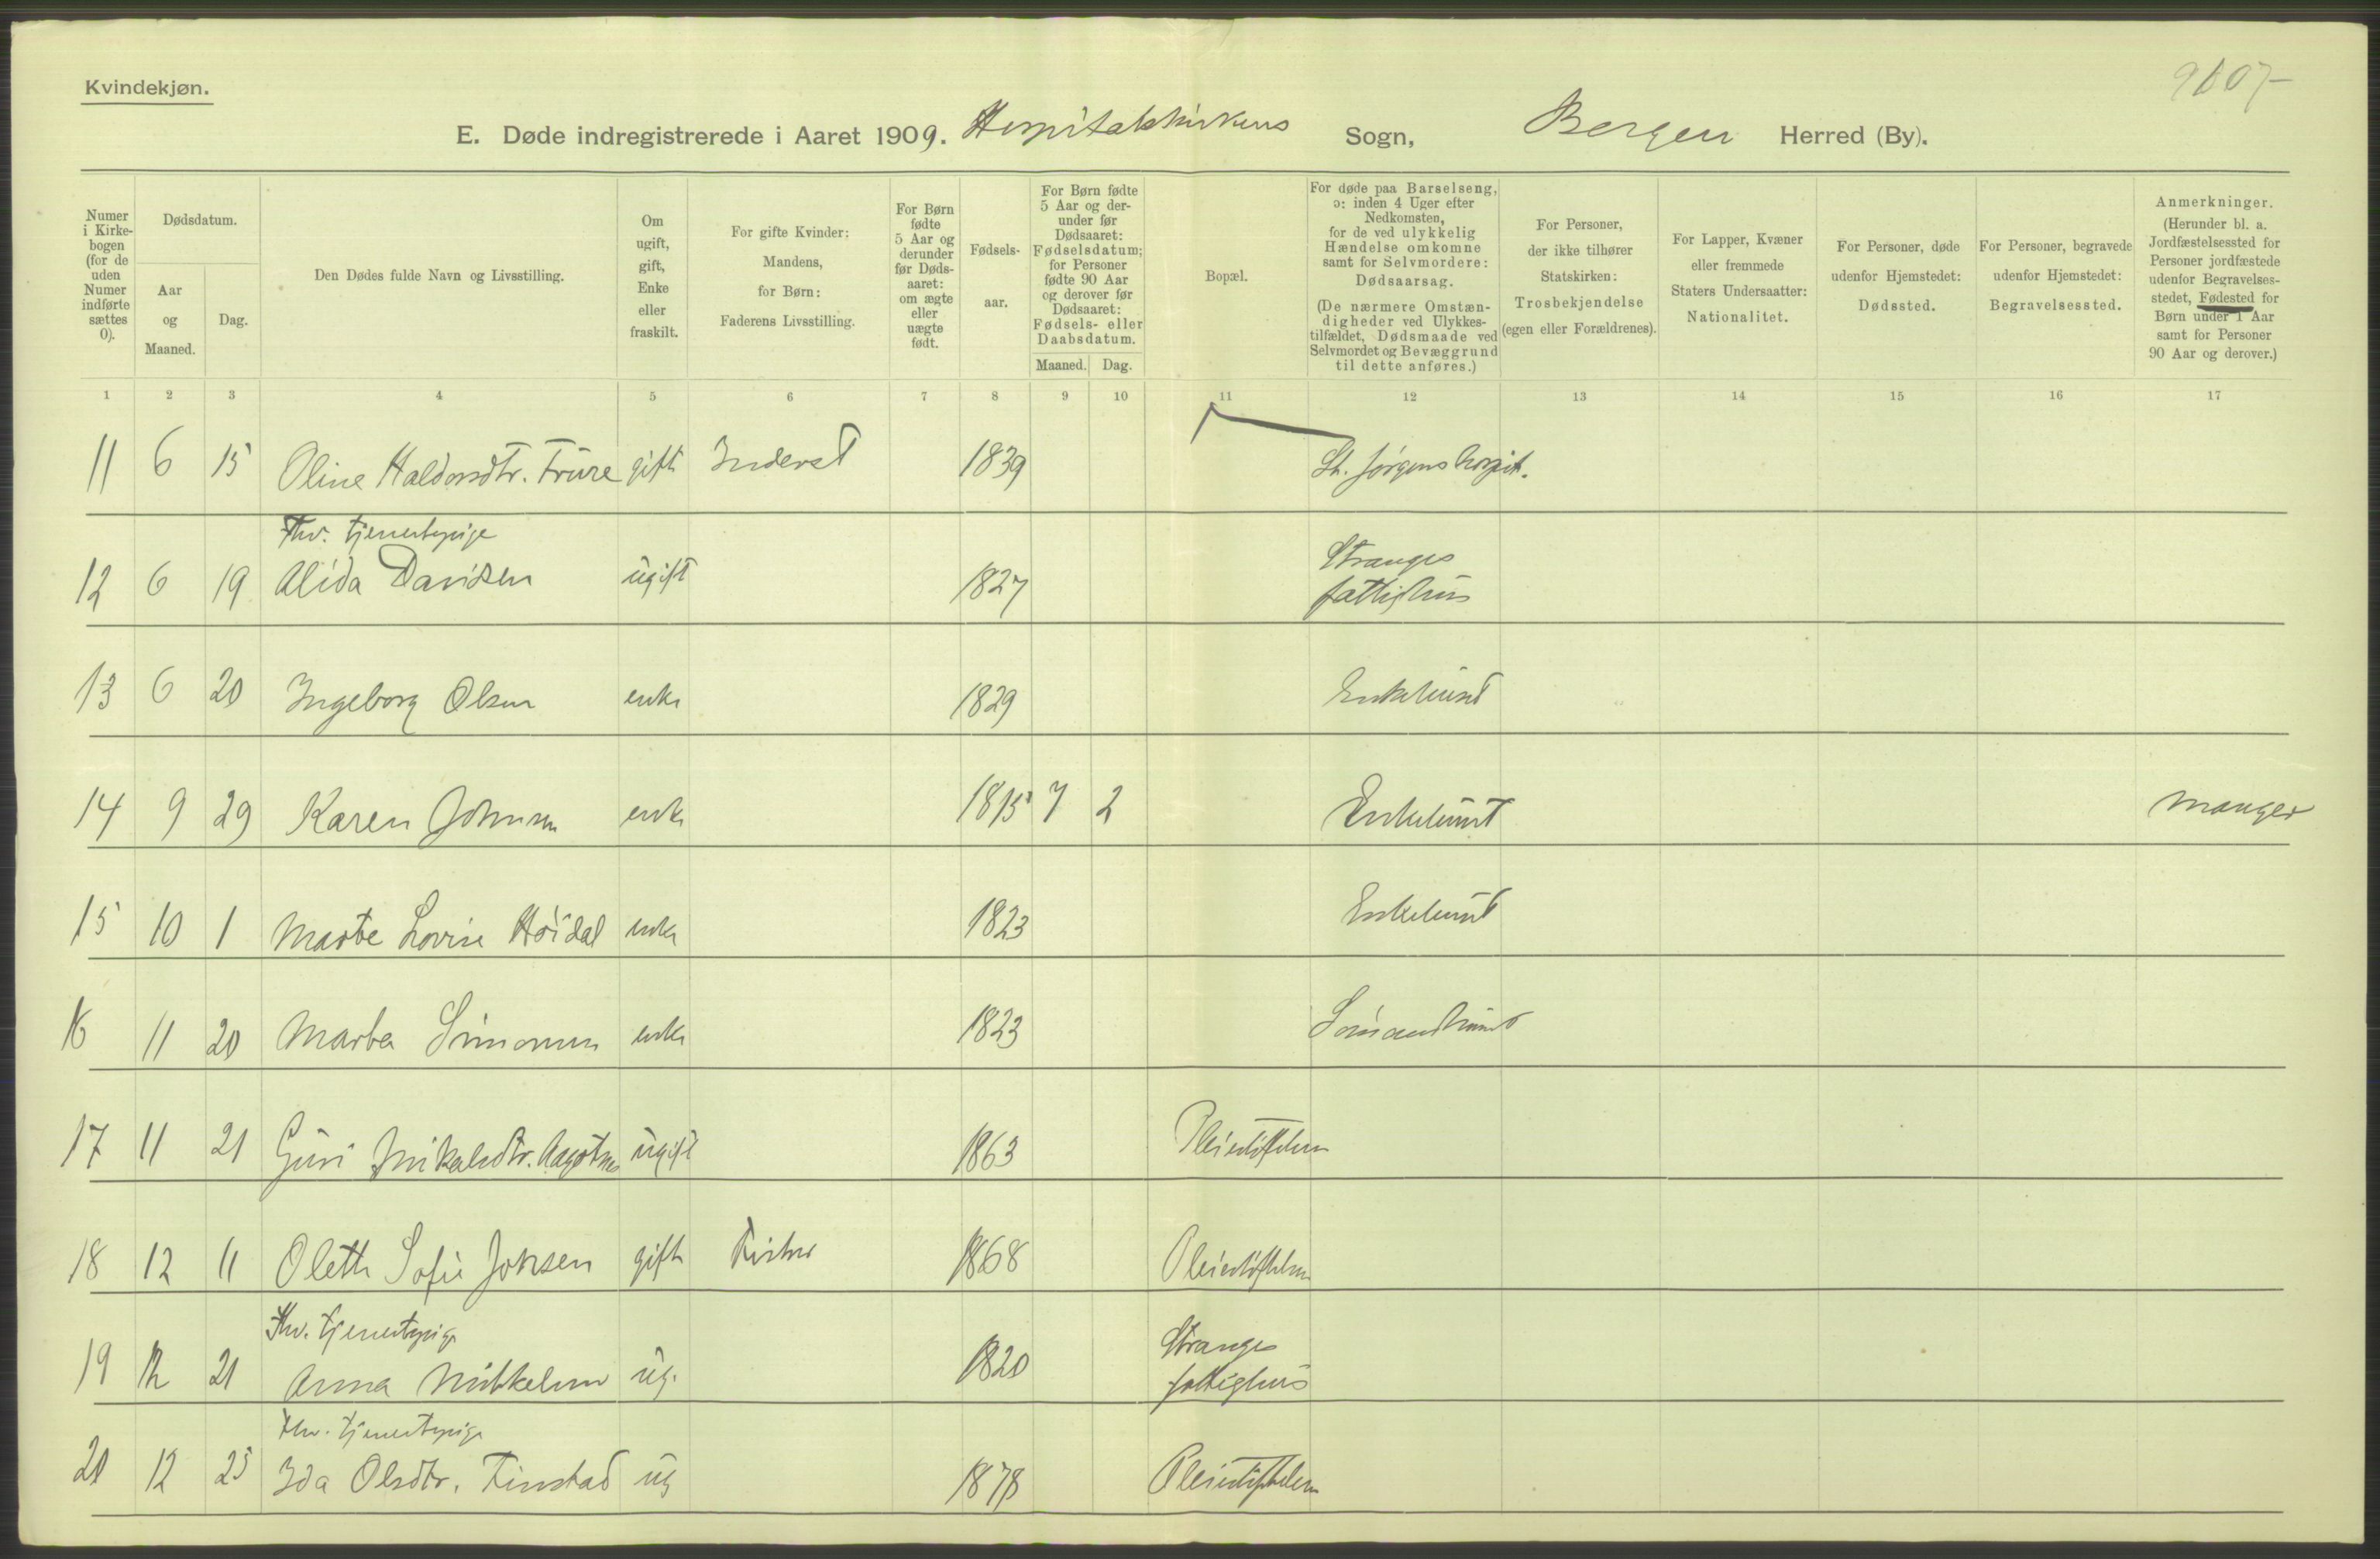 Kvindekjøn.
E. Døde indregistrerede i Aaret 1909. Hospitalskirkens Sogn, Bergen Herred (By).
Numer i Kirkebogen (for de uden Numer indførte sættes 0).
Dødsdatum.
Aar og Maaned.
Dag.
Den Dødes fulde Navn og Livsstilling.
Om ugift, gift, Enke eller fraskilt.
For gifte Kvinder: Mandens, for Børn: Faderens Livsstilling.
For Børn fødte 5 Aar og derunder før Dødsaaret: om ægte eller uægte født.
Fødselsaar.
For Børn fødte 5 Aar og derunder før Dødsaaret: Fødselsdatum; for Personer fødte 90 Aar og derover før Dødsaaret: Fødsels- eller Daabsdatum.
Maaned. Dag.
Bopæl.
For døde paa Barselseng, ɔ: inden 4 Uger efter Nedkomsten, for de ved ulykkelig Hændelse omkomne samt for Selvmordere: Dødsaarsag.
(De nærmere Omstændigheder ved Ulykkestilfældet, Dødsmaade ved Selvmordet og Bevæggrund til dette anføres.)
For Personer, der ikke tilhører Statskirken: Trosbekjendelse (egen eller Forældrenes).
For Lapper, Kvæner eller fremmede Staters Undersaatter: Nationalitet.
For Personer, døde udenfor Hjemstedet: Dødssted.
For Personer, begravede udenfor Hjemstedet: Begravelsessted.
Anmerkninger.
(Herunder bl. a. Jordfæstelsessted for Personer jordfæstede udenfor Begravelsesstedet, Fødested for Børn under 1 Aar samt for Personer 90 Aar og derover.)
1 2 3 4 5 6 7 8 9 10 11 12 13 14 15 16 17
11 6 15 Oline Haldorsdtr. gift Inderst 1839 St. Jørgens hospit.
Fhv. tjenestepige
12 6 19 Alida Davidsen ugift 1827 Stranges
fattighus
13 6 20 Ingeborg Olsen enke 1829 Enkehuset
14 9 29 Karen Johnsen enke 1815 7 2 Enkehuset Manger
15 10 1 Marte Lovise Höidal enke 1823 Enkehuset
16 11 20 Marta Simonsen enke 1823
17 11 21 Guri Mikalsdtr. Aagotnes ugift 1863 Pleiestiftelsen
18 12 11 Olette Sofie Johsen gift Fisker 1868 Pleiestiftelsen
Fhv. tjenestepige
19 12 21 Anna Mikkelsen ug. 1820 Stranges
fattighus
Fhv. tjenestepige
20 12 25 Ida Olsdtr. Finstad ug 1878 Pleiestiftelsen